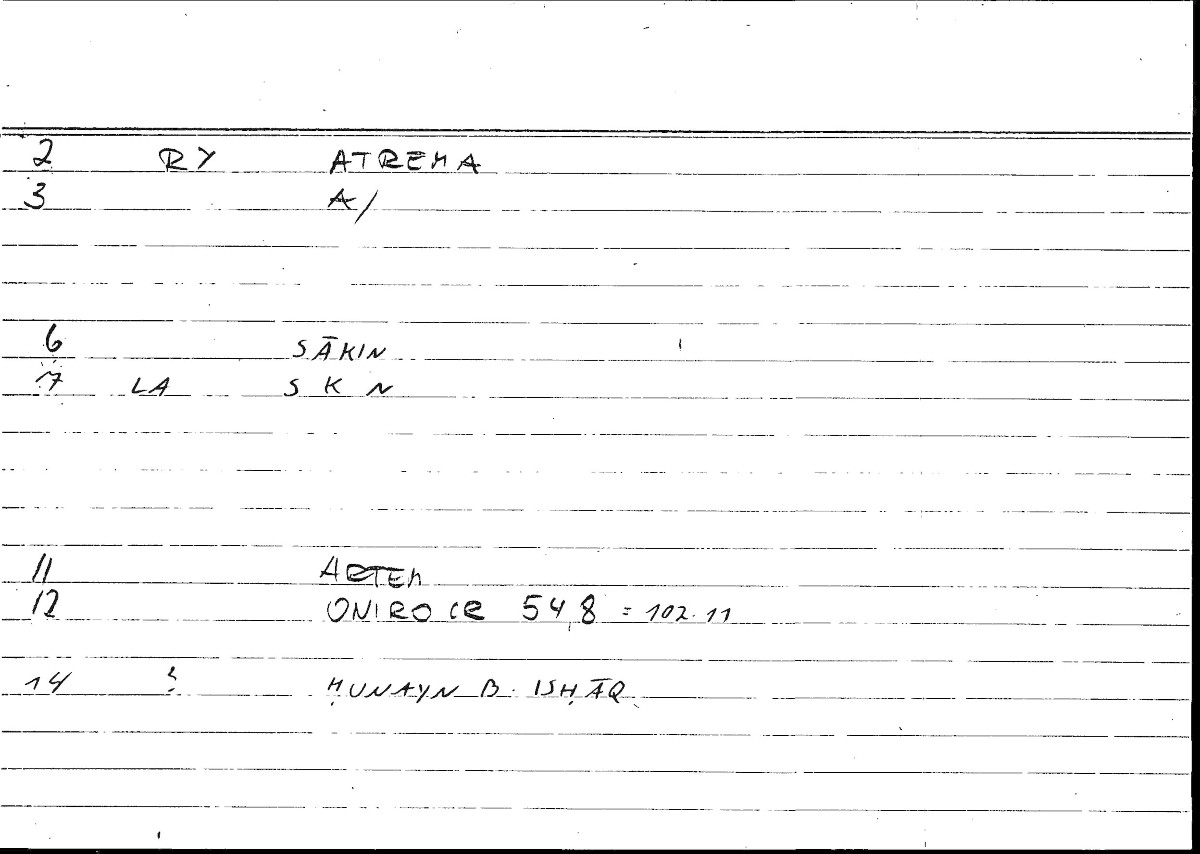 2 RY ATREMA
3 A/
6 SĀKIN
7 LA S K N
11 ARTEM
12 ONIROCR 54,8 = 102.11
14 ? ḤUNAYN B. ISḤĀQ